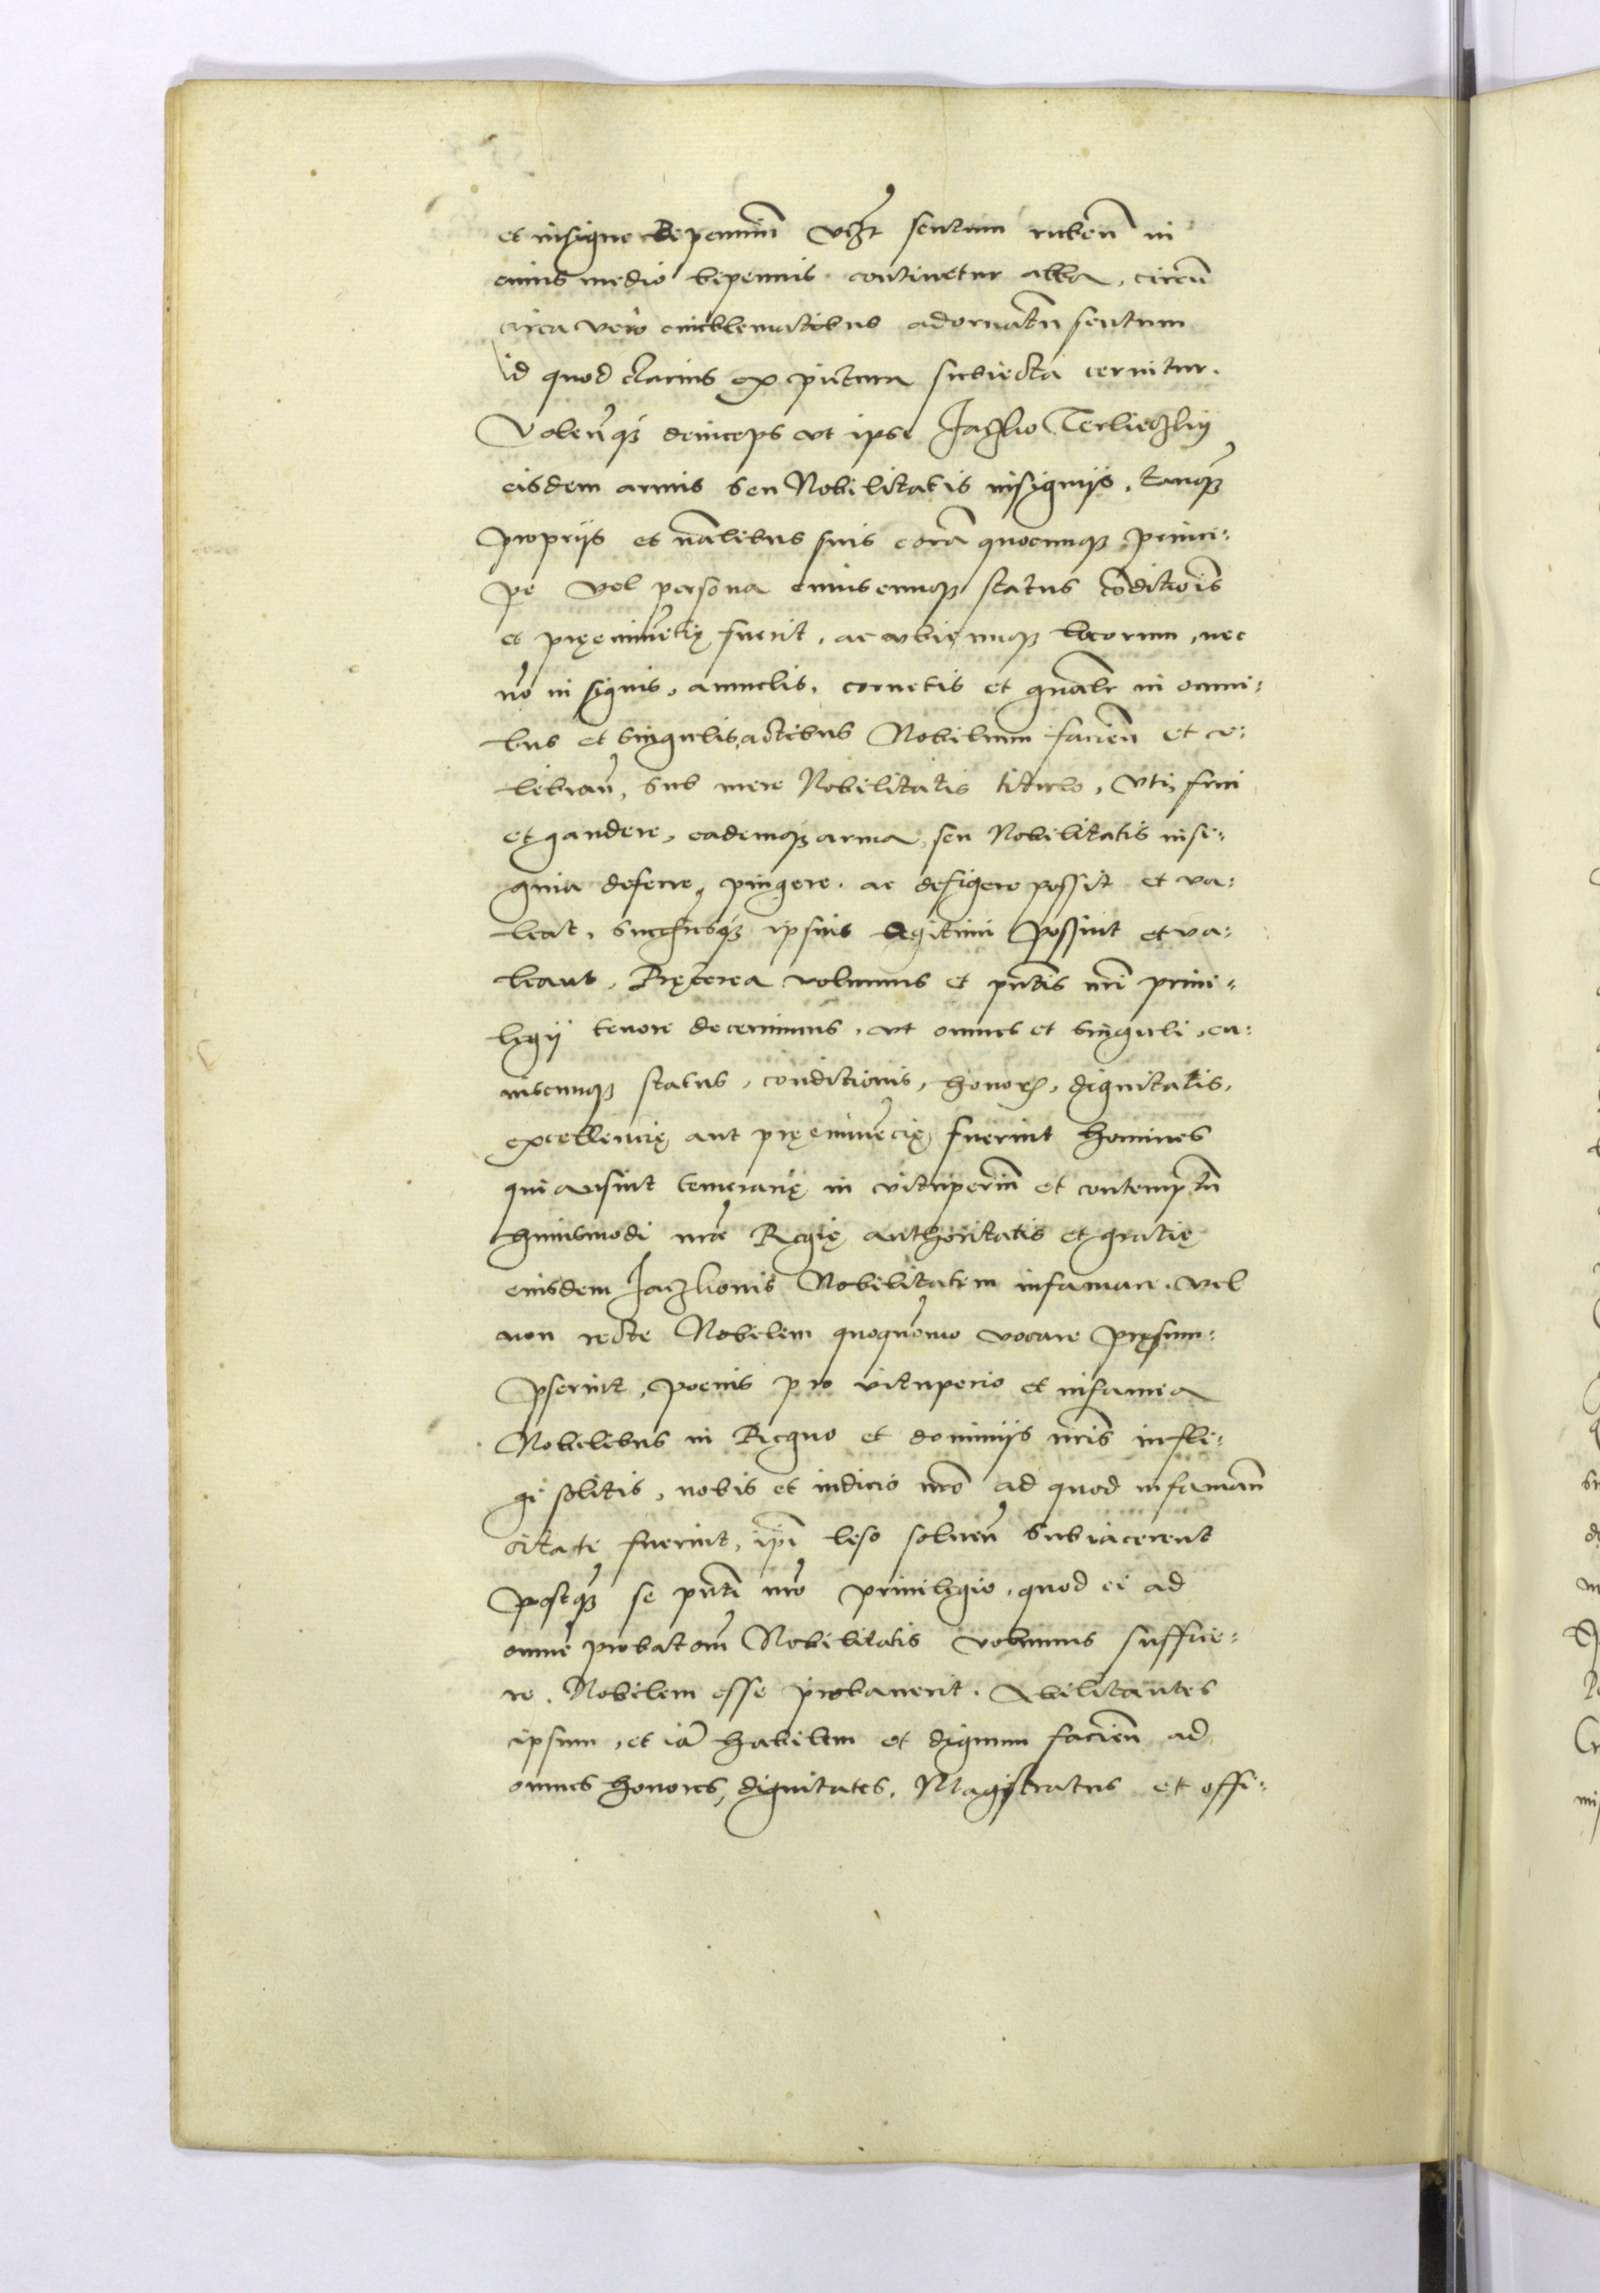 et insigne bipennim včzt scutum ruben̄ in
cuius medio bipennis continetur alba, circū
circa vero emblematibus adornatū scutum
id quod clarius ex pictura subiecta cernitur.
Volen̄q3 deinceps ut ipse Jaczko Terlieczkij
eisdem armis seu Nobilitatis insignijs, tanq3
proprijs et nālibus suis corā quocumq3 princi:
pe vel persona cuiuscumq3 status cōditiōis
et pręeminētię fuerit, ac ubicumq3 locorum, nec
nō in signis, annulis, cornetis et gnālr in omni:
bus et singulis actibus Nobilium facien̄ et ce:
libran̄, sub mere Nobilitatis titulo, uti, frui
et gaudere, eademq3 arma seu Nobilitatis insi:
gnia deferre, pingere, ac defigere possit et va:
leat, succ̄usq3 ipsius legitimi possint et va:
leant. Pręterea volumus et pn̄tis nr̄i priui:
legij tenore decernimus, ut omnes et singuli, cu:
iuscumq3 status, conditionis, honoris, dignitatis,
excellencię aut pręeminēcię fuerint homines
qui ausint temerarię in vituperiū et contemptū
huiusmodi nrāe Regię authoritatis et gratię
eiusdem Jaczkonis Nobilitatem infamare vel
non recte Nobilem quoquōmo vocare pręsum:
pserint, poenis pro vituperio et infamia
Nobilibus in Regno et dominijs nr̄is infli:
gi solitis, nobis et iudicio nr̄o ad quod infaman̄
citati fuerint, ip̄i leso soluen̄ subiacerent
postq3 se pn̄ti nr̄o priuilegio, quod ei ad
omnē probatiōm Nobilitatis volumus suffice:
re, Nobilem esse probauerit. Abilitantes
ipsum, et iā habilem et dignum facien̄ ad
omnes honores, dignitates, Magistratus et offi: